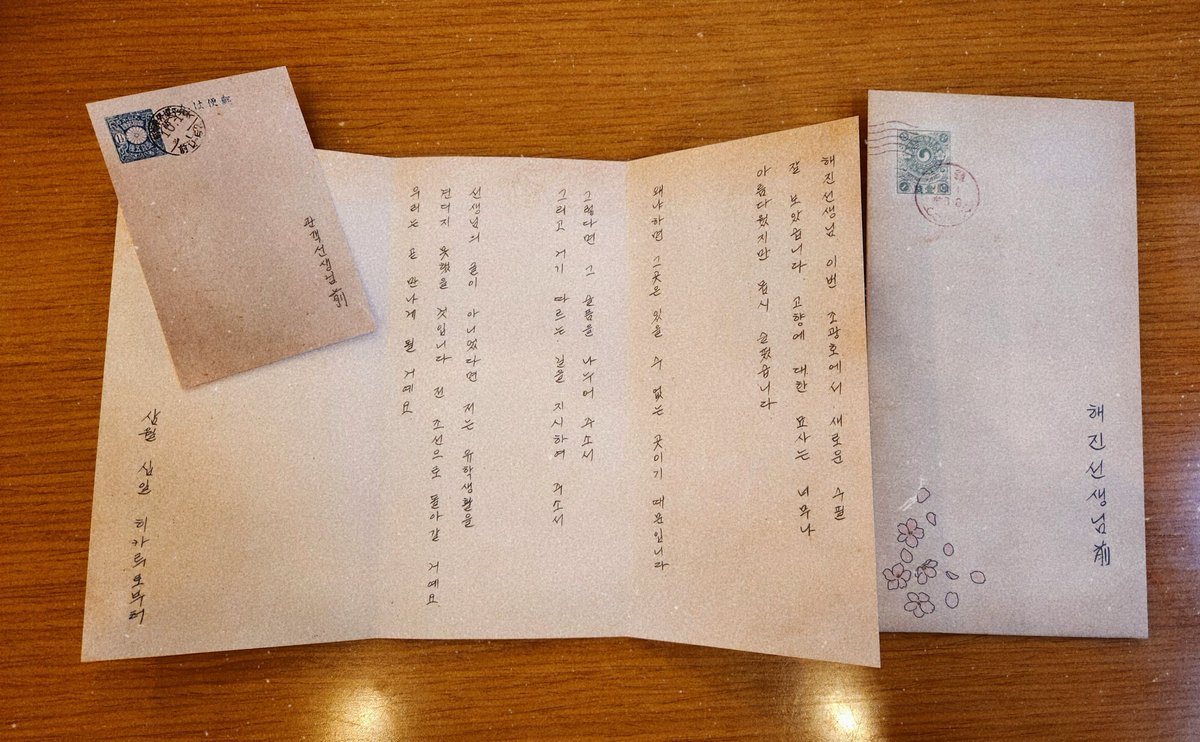 해진선생님 前
해진선생님 이번 조광호에서 새로운 수필
잘 보았읍니다. 고향에 대한 묘사는 너무나
아름다웠지만 몹시 슬펐읍니다
왜냐하면 그곳은 있을 수 없는 곳이기 때문입니다.
그렇다면 그 슬픔을 나누어 주소서
그리고 거기 따르는 길을 지시하여 주소서
선생님의 글이 아니었다면 저는 유학생활을
견디지 못했을 것입니다 전 조선으로 돌아갈 거예요
우리는 곧 만나게 될 거예요
삼월 십일 히카루로부터
郵便は
관객선생님 前